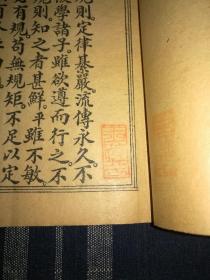 規則定律綦嚴流傳永久不
後學諸子雖欲遵而行之不
規則知之者甚鮮平雖不敏
有規苟無規矩不足以定